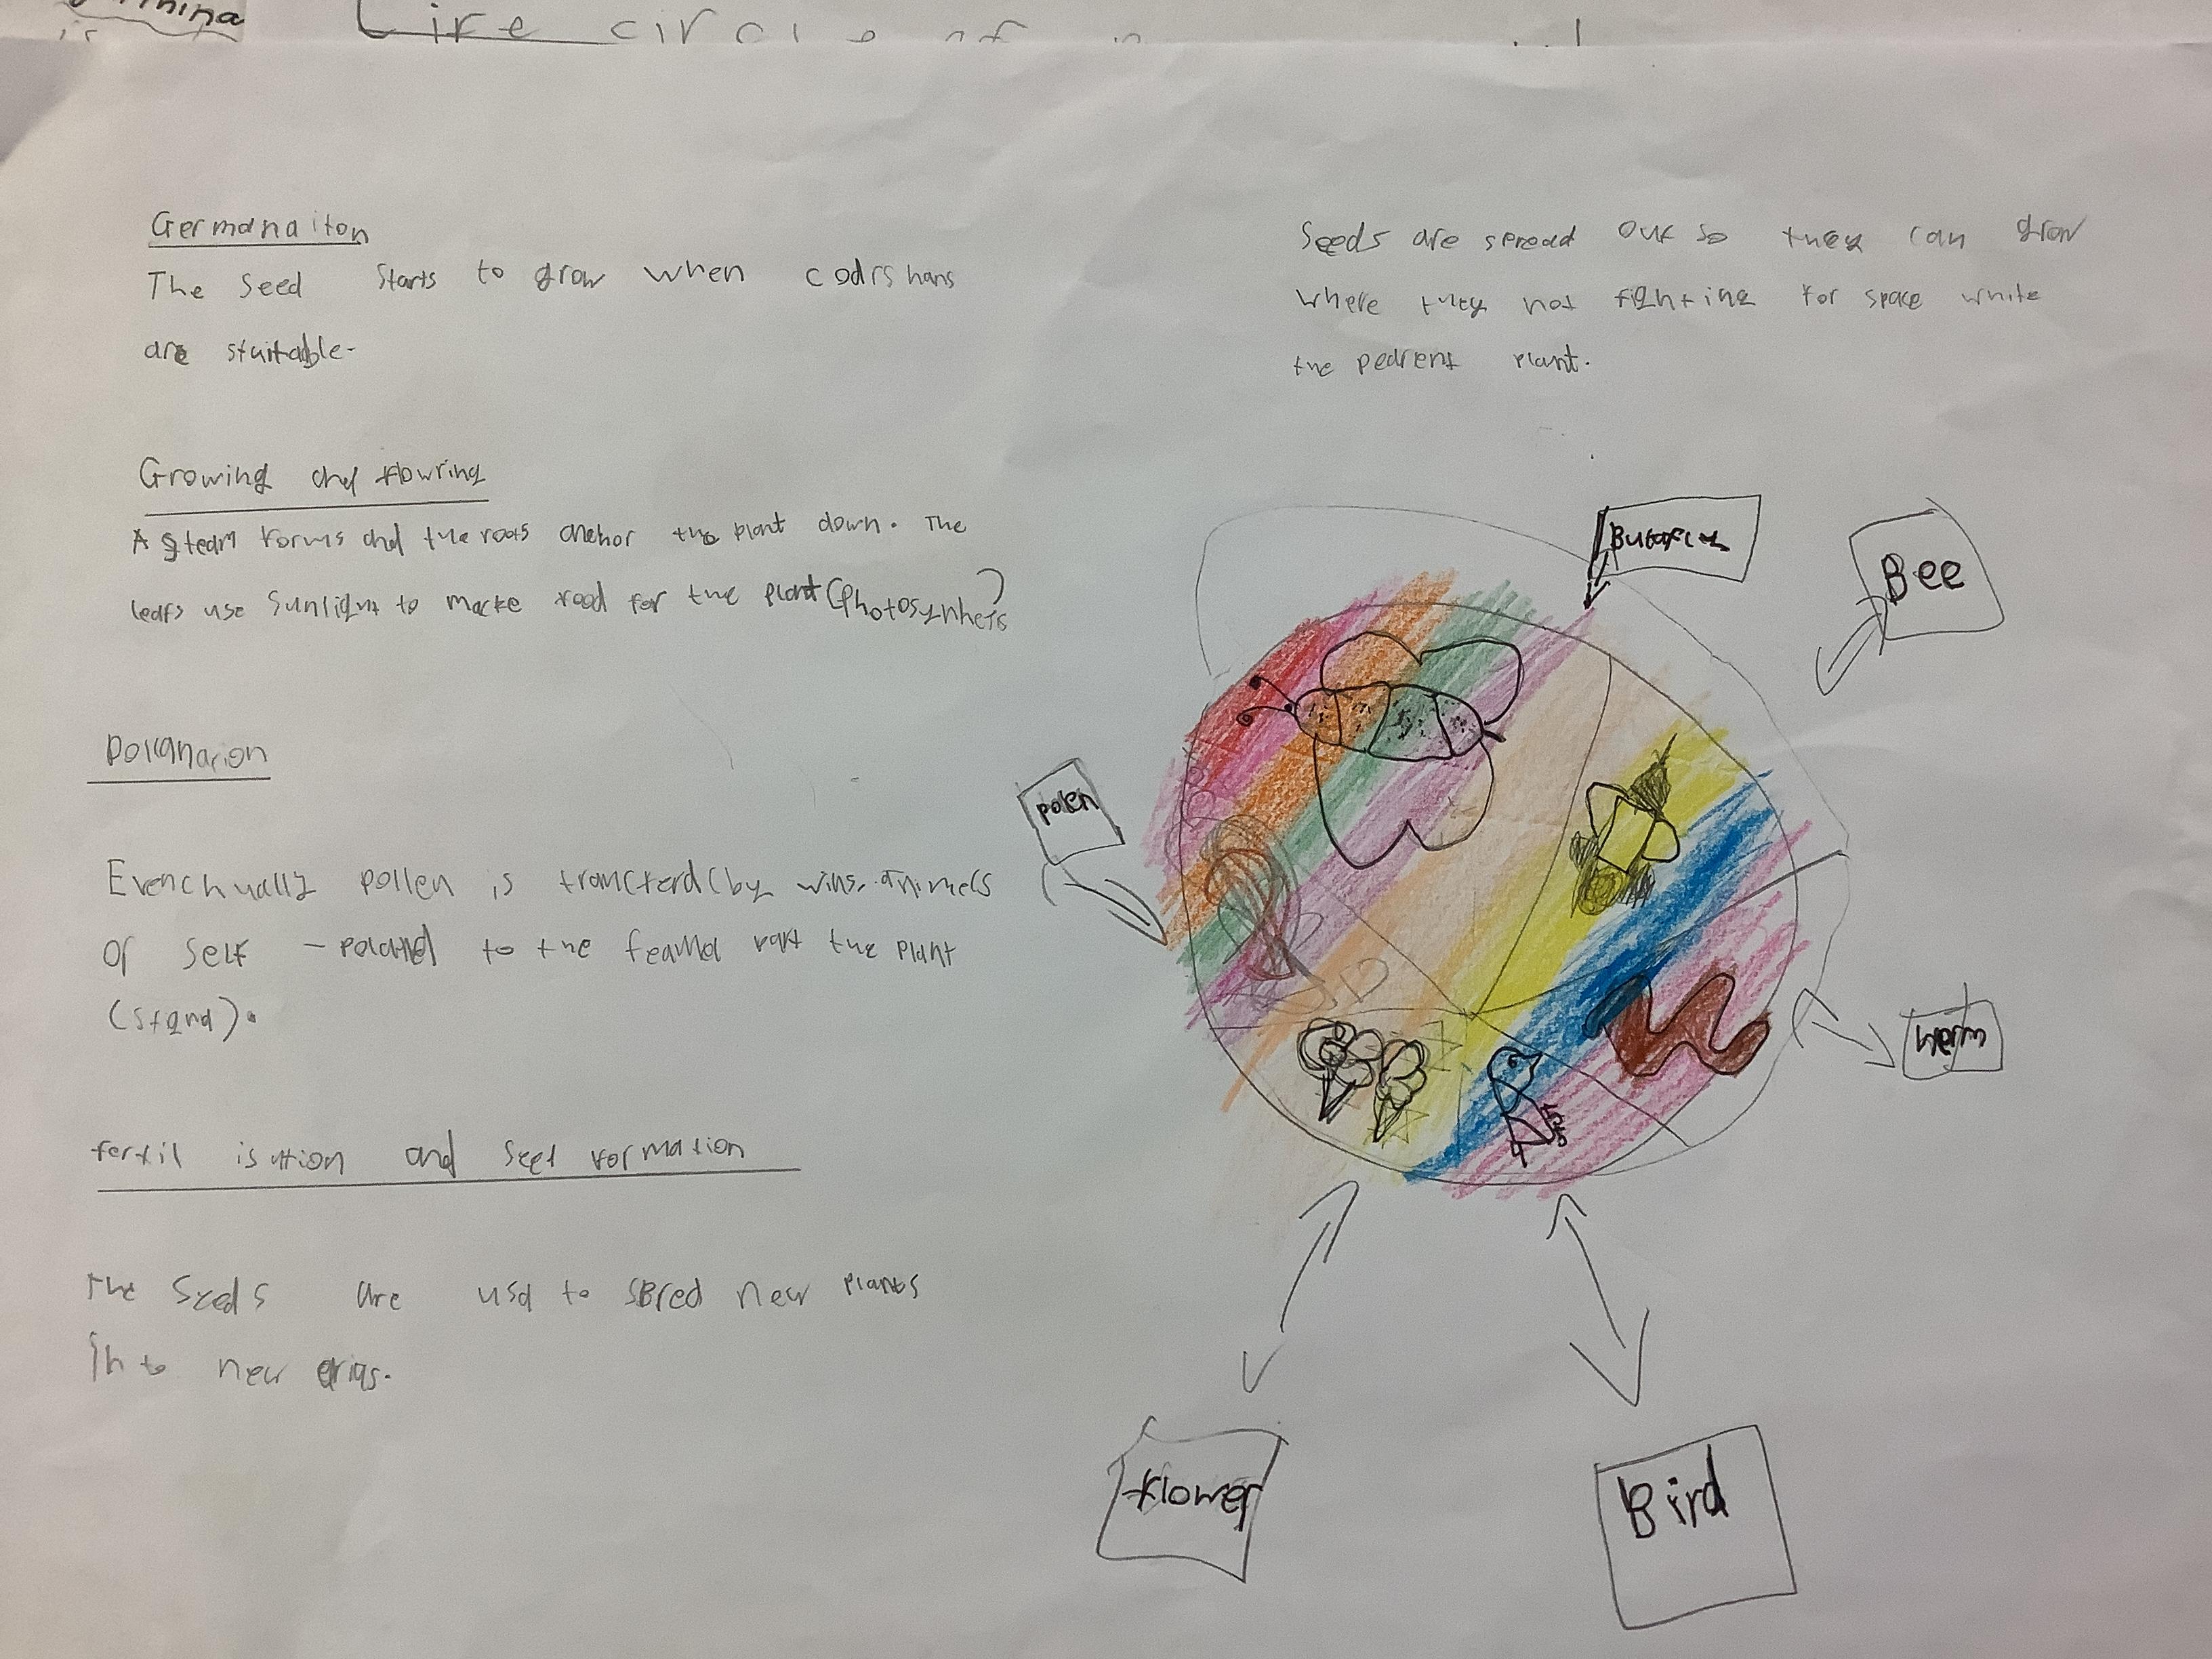 Life circle of
Germanaiton
The Seed Starts to grow when
are stuitable.
Growing and flowring
A steam forms and the roots anchor the plant down. The
leafs use Sunlight to macke food for the plant (Photosynthesis)
Evenchually pollen is by animels
Of self - to the part the plant
fertil isution and seed formation
The Seeds are usd to SBred new plants
In to new arias.
Seeds are spread out so they can grow
where they not fighting for space white
the pedrent plant.
Bee
polen
werm
flower
Bird